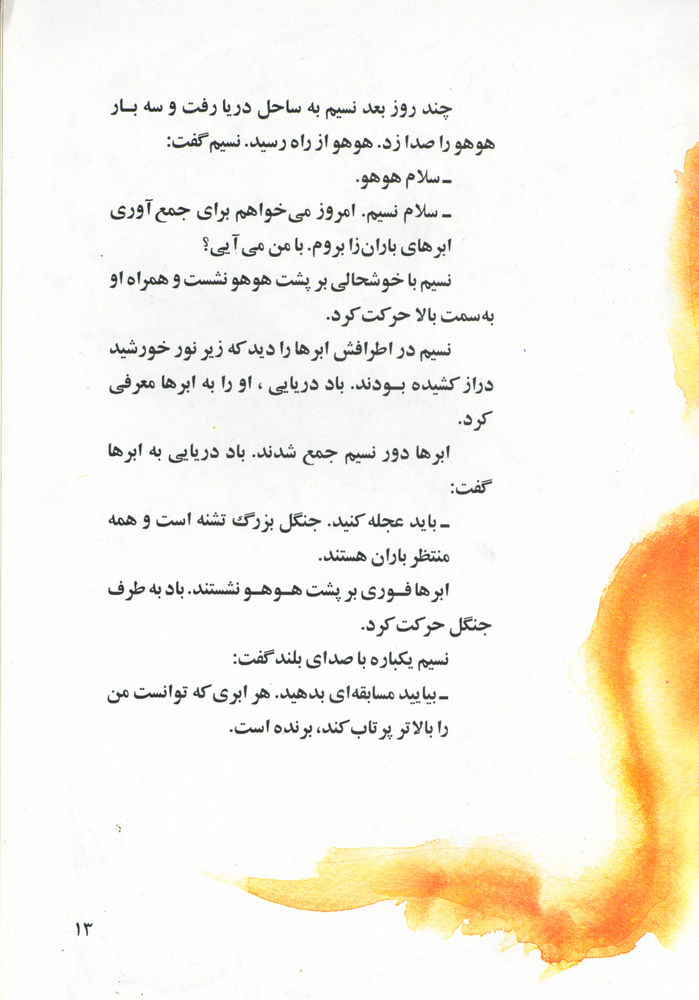 چند روز بعد نسیم به ساحل دریا رفت و سه بـار
هوهو را صدا زد. هوهو از راه رسید. نسیم گفت:
ـ سلام هوهو.
ـ سلام نسیم. امروز می‌خواهم برای جمع آوری
ابرهای باران‌زا بروم. با من می‌آیی؟
نسیم با خوشحالی بر پشت هوهو نشست و همراه او
به‌سمت بالا حرکت کرد.
نسیم در اطرافش ابرها را دید که زیر نور خورشید
دراز کشیده بـودند. باد دریایی ، او را به ابرها معرفی
کرد.
ابرها دور نسیم جمع شدند. باد دریایی به ابرها
گفت:
ـ باید عجله کنید. جنگل بزرگ تشنه است و همه
منتظر باران هستند.
ابرها فـوری بر پشت هـوهـو نشستند. باد به طرف
جنگل حرکت کرد.
نسیم یکباره با صدای بلند گفت:
ـ بیایید مسابقه‌ای بدهید. هر ابری که توانست من
را بالاتر پرتاب کند، برنده است.
۱۳